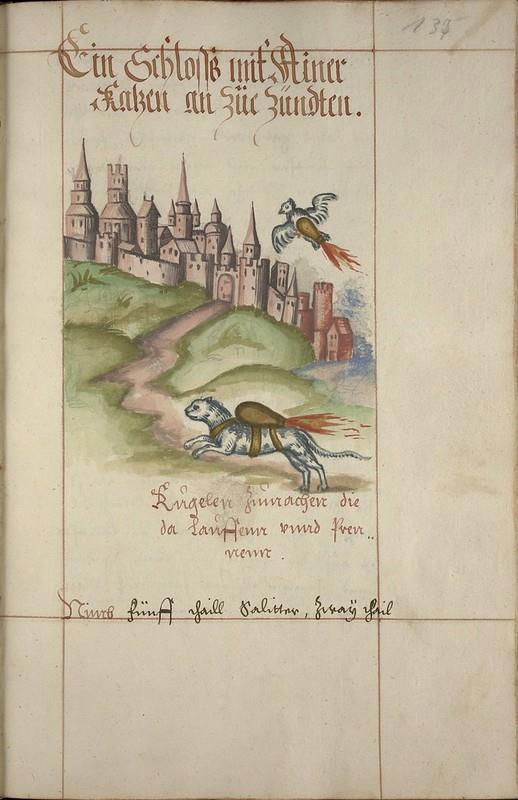 135
Ein Schloss mit Ainer
Katzen an züe zündten.
Kugelen zumachen die
da lauffenn vnnd Pren„
nenn.
Nimb fünff thaill Salitter, zway thail